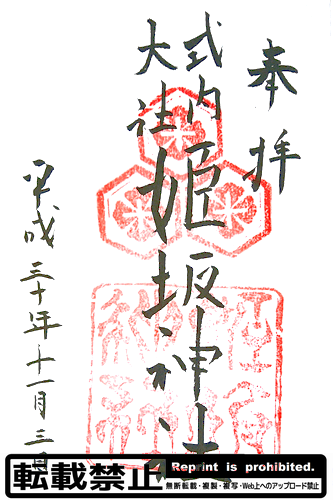 奉拝
式内
大社
姫坂神社
平成三十年十一月三日
転載禁止
Reprint is prohibited.
無断転載・複製・複写・Web上へのアップロード禁止